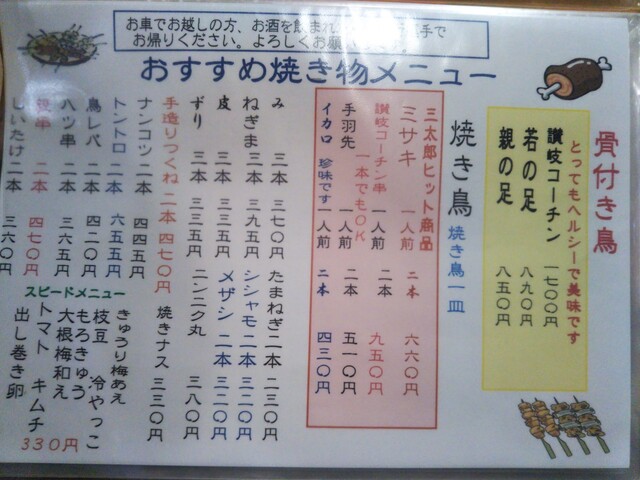 お車でお越しの方、お酒を飲まれ
手で
お帰りください。よろしくお願
おすすめ焼き物メニュー
骨付き鳥
とってもヘルシーで美味です
讃岐コーチン 一七〇〇円
若の足 八九〇円
親の足 八五〇円
焼き鳥 焼き鳥一皿
三太郎ヒット商品
ミサキ 一人前 二本 六六〇円
讃岐コーチン串 一人前 二本 九五〇円
一本でもOK
手羽先 一人前 二本 五一〇円
イカロ 珍味です 一人前 二本 四三〇円
み 三本 三七〇円
ねぎま 三本 三九五円
皮 三本 三三五円
ずり 三本 三三五円
手造りつくね 二本 四七〇円
ナンコツ 二本 四四五円
トントロ 二本 六五五円
鳥レバ 二本 四二〇円
ハツ串 二本 三六五円
串 二本 四七〇円
しいたけ 二本 三六〇円
たまねぎ 二本 二三〇円
シシャモ 二本 三二〇円
メザシ 二本 三二〇円
ニンニク丸 三八〇円
焼きナス 三三〇円
スピードメニュー
きゅうり梅あえ
枝豆 冷やっこ
もろきゅう
大根梅和え
トマト キムチ
出し巻き卵
330円